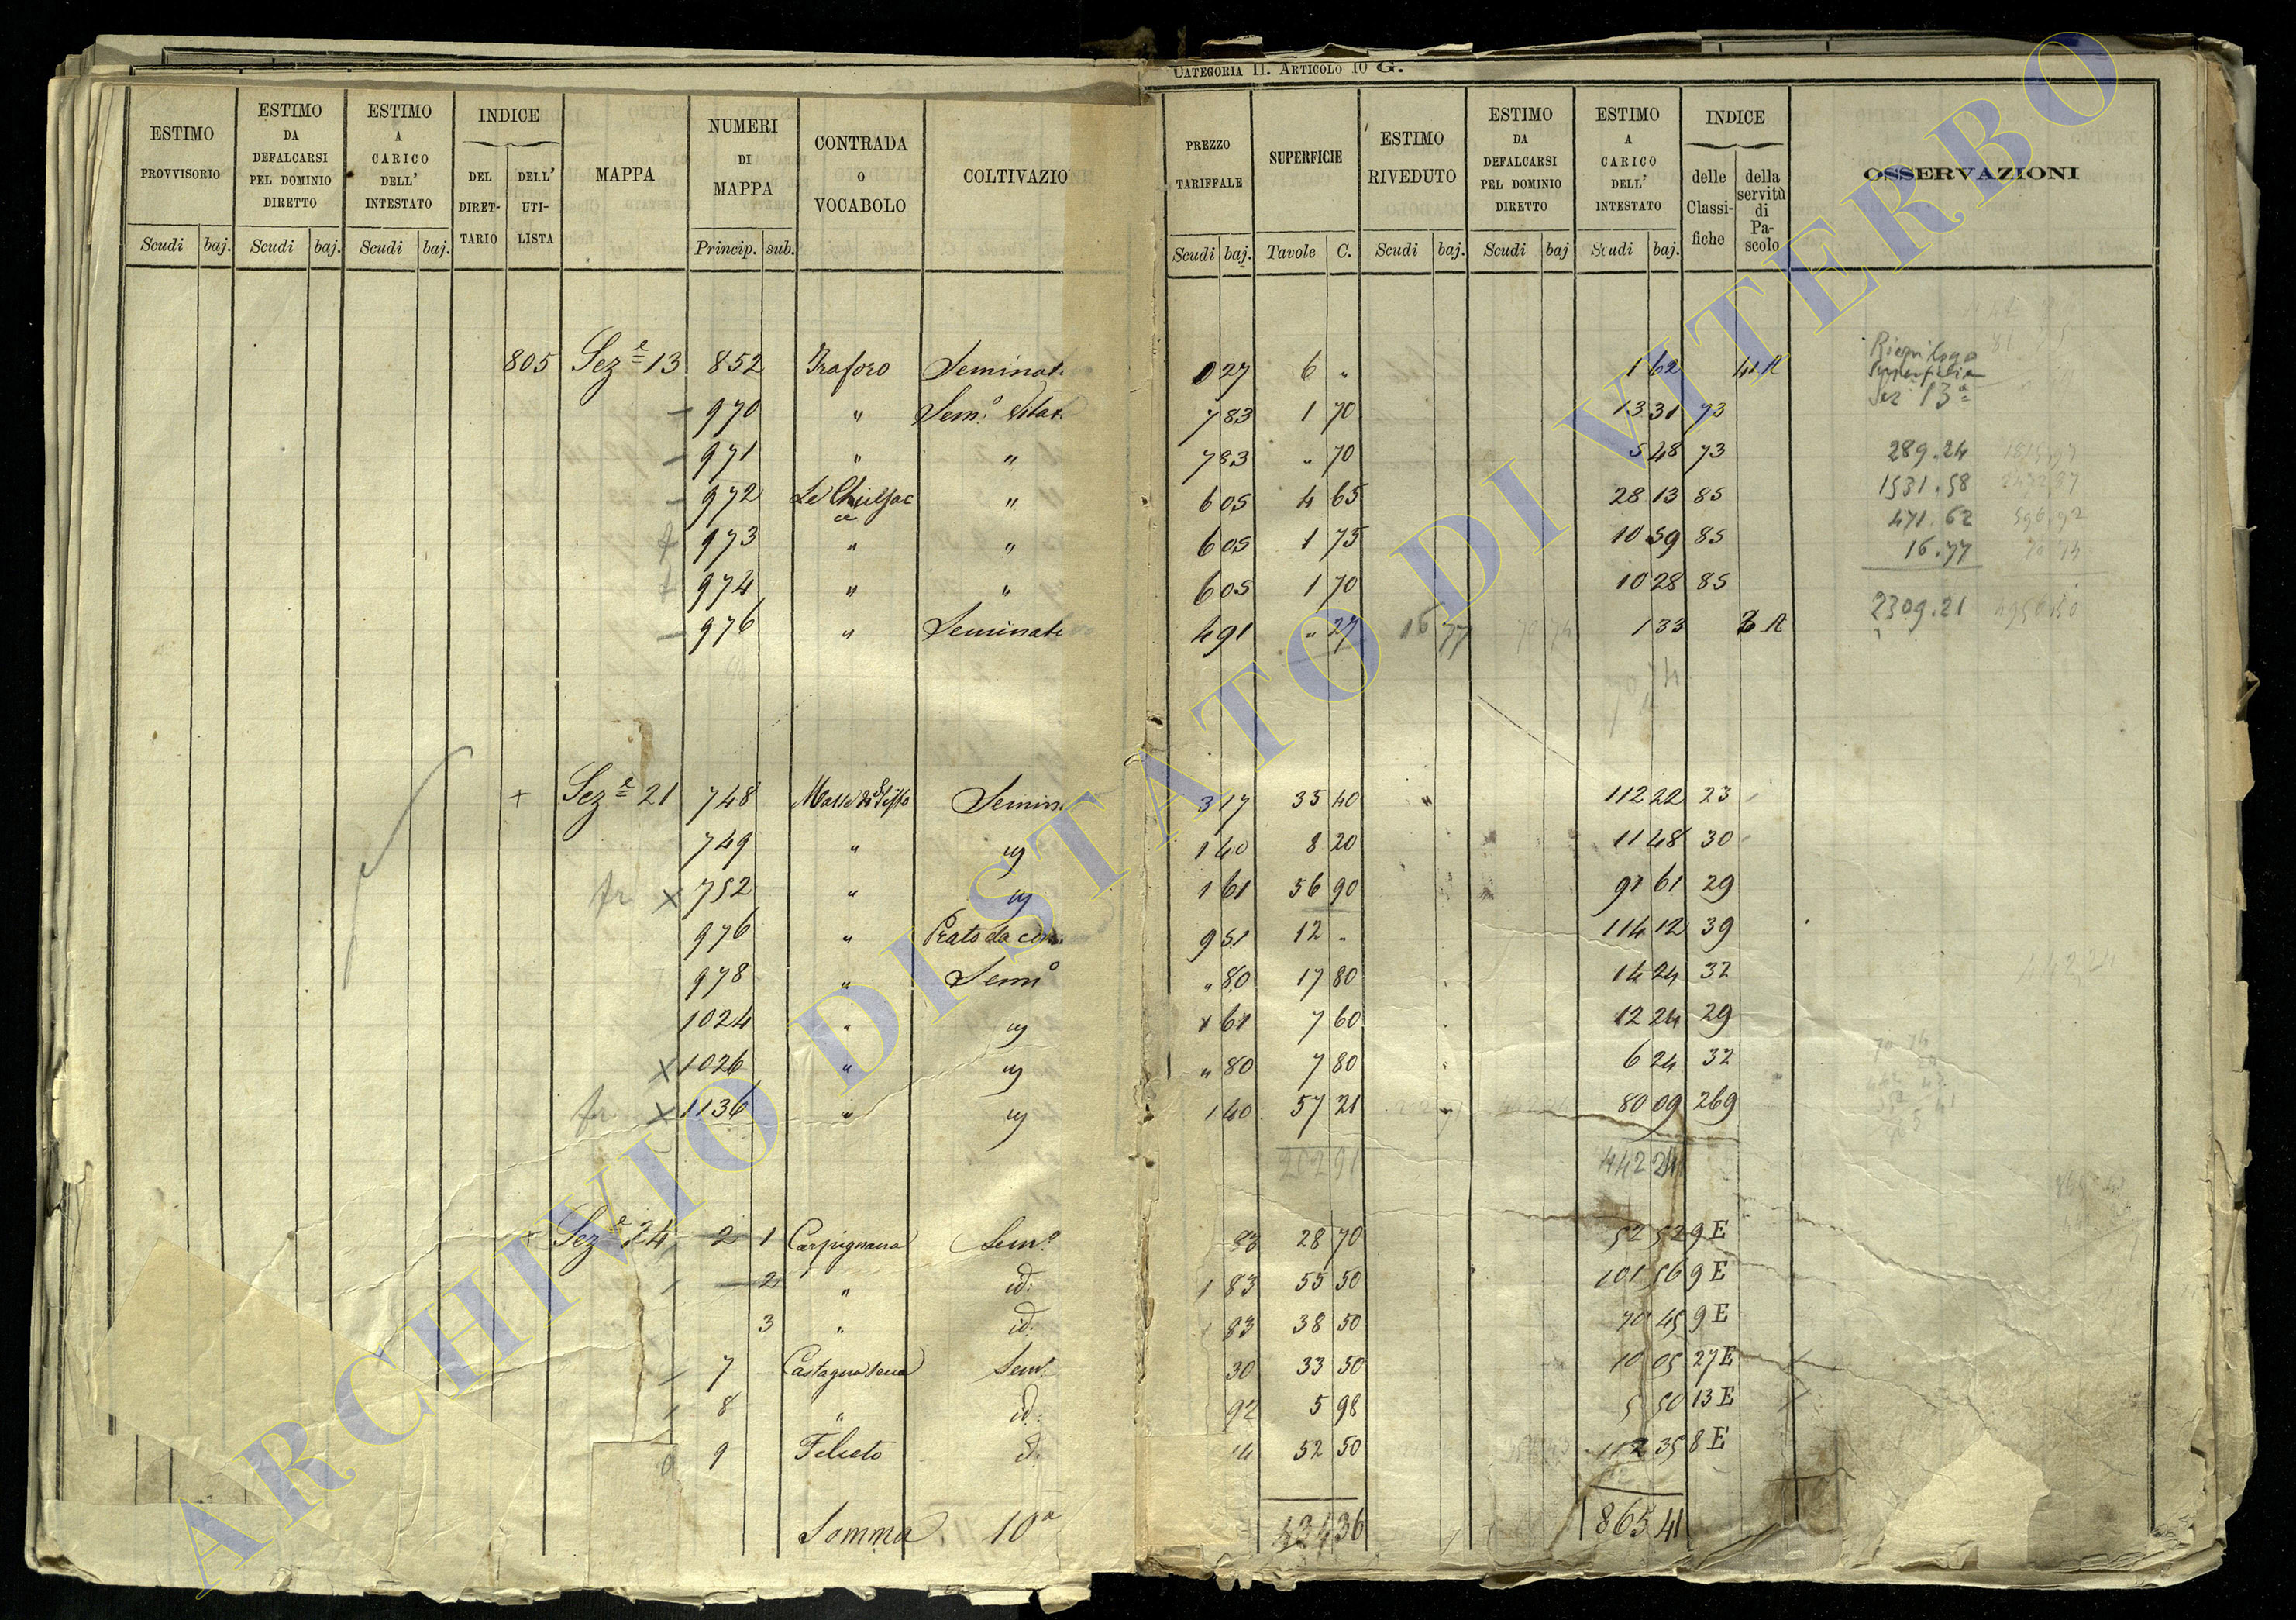 CATEGORIA II. ARTICOLO 10 G.
ESTIMO PROVVISORIO Scudi baj.
ESTIMO DA DEFALCARSI PEL DOMINIO DIRETTO Scudi baj.
ESTIMO A CARICO DELL' INTESTATO Scudi baj.
INDICE DEL DIRET- TARIO DELL' UTI- LISTA
MAPPA
NUMERI DI MAPPA Princip. sub.
CONTRADA O VOCABOLO
COLTIVAZIO
PREZZO TARIFFALE Scudi baj.
SUPERFICIE Tavole C.
ESTIMO RIVEDUTO Scudi baj.
ESTIMO DA DEFALCARSI PEL DOMINIO DIRETTO Scudi baj
ESTIMO A CARICO DELL' INTESTATO Scudi baj.
INDICE delle Classi- fiche della servitù di Pa- scolo
OSSERVAZIONI
805 Seze 13 852 Traforo Seminat. 0 27 6 " 1 62 4 R
970 " Semo. Vitat. 7 83 1 70 13 31 73
971 " " 7 83 " 70 5 48 73
972 Le " 6 05 4 65 28 13 85
973 " " 6 05 1 75 10 59 85
974 " " 6 05 1 70 10 28 85
976 " Seminati 4 91 " 27 16 77 70 74 1 33 R
70 74
Riepilogo
Superficie
Sez 13a
289.24
1531.58
471.62
16.77
2309.21
+ Seze 21 748 Semin 3 17 35 40 " 112 22 23
749 " " 1 40 8 20 11 48 30
fr x 752 " " 1 61 56 90 91 61 29
976 " Prato da 9 51 12 " 114 12 39
978 " Semo " 80 17 80 14 24 32
1024 " " 1 61 7 60 12 24 29
x 1026 " " " 80 7 80 6 24 32
fr x 1136 " " 1 40 57 21 80 09 269
442 24
+ Seze 24 2 1 Carpignana Semo. 83 28 70 52 52 9 E
2 " id: 1 83 55 50 101 56 9 E
3 " id: 83 38 50 70 45 9 E
7 Semo. 30 33 50 10 05 27 E
8 " id: 92 5 98 5 50 13 E
9 Felceto id. 14 52 50 112 35 8 E
Somma 10a 434 36 865 41
ARCHIVIO DI STATO DI VITERBO